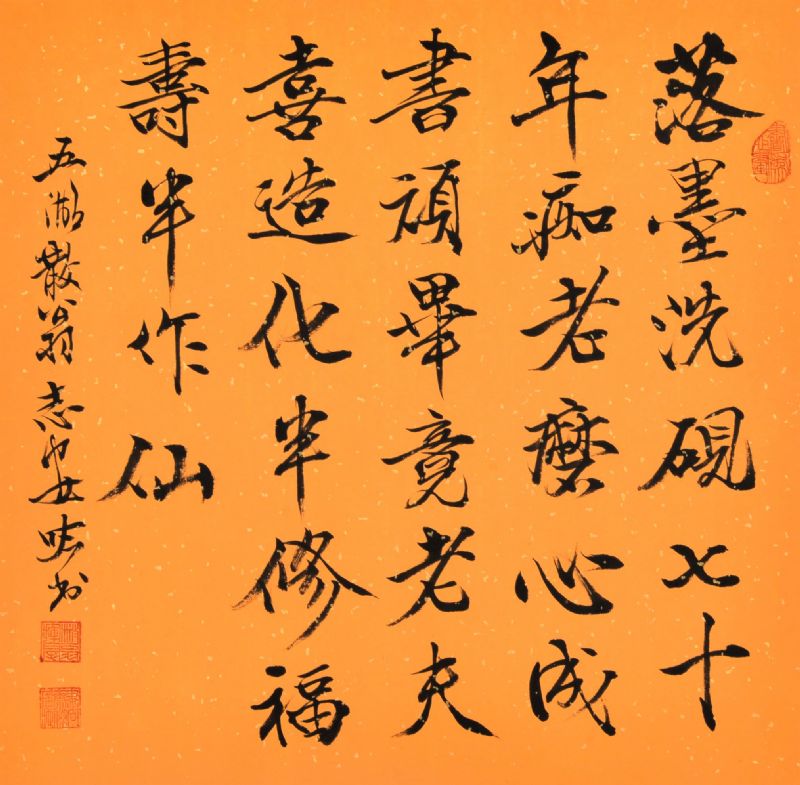 落墨洗硯七十
年痴老磨心成
書頑畢竟老夫
喜造化半修福
壽半作仙
五湖散翁志书